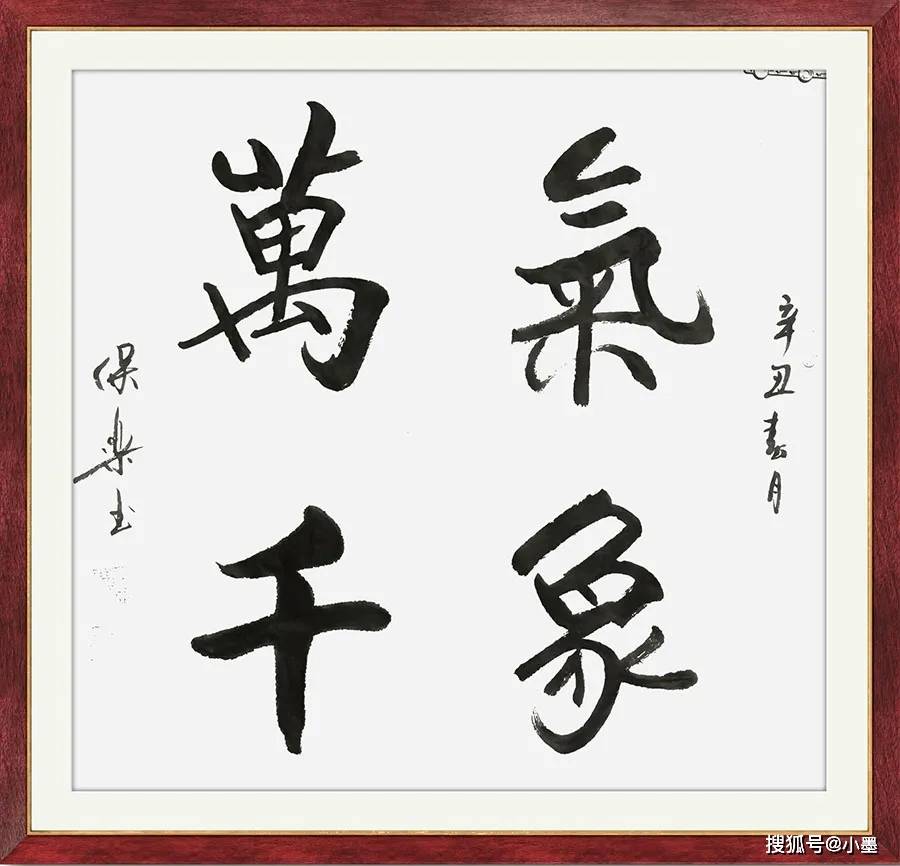 辛丑春月
氣象
萬千
保樂书
搜狐号@小墨